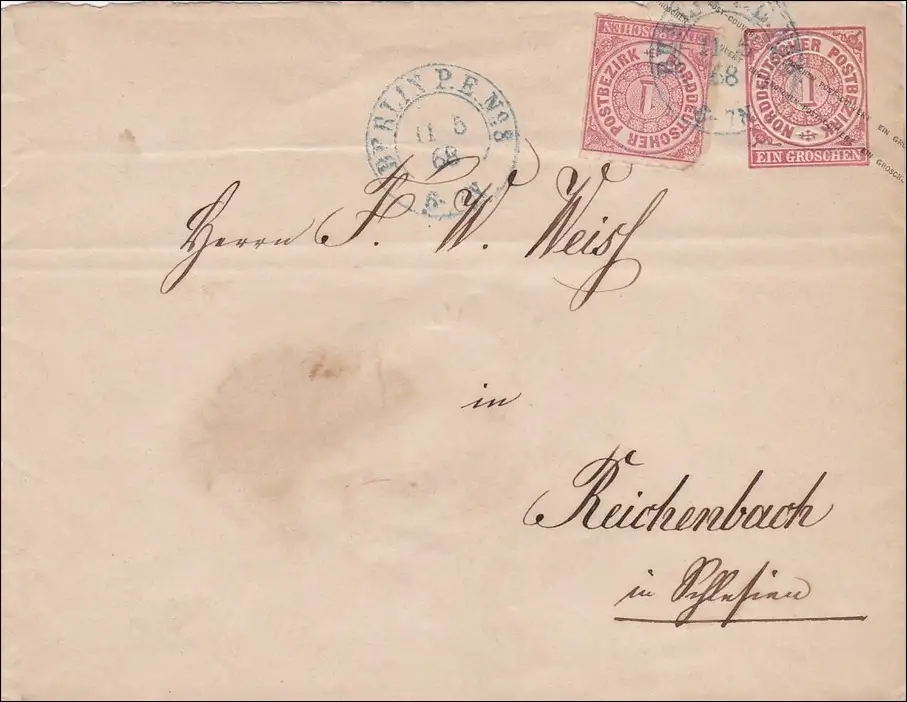 BERLIN P.E. No 8
11 5
68
NORDDEUTSCHER POSTBEZIRK
1
EIN GROSCHEN
NORDDEUTSCHER POSTBEZIRK
1
EIN GROSCHEN
Herrn F. W. Weiss
in
Reichenbach
in Schlesien